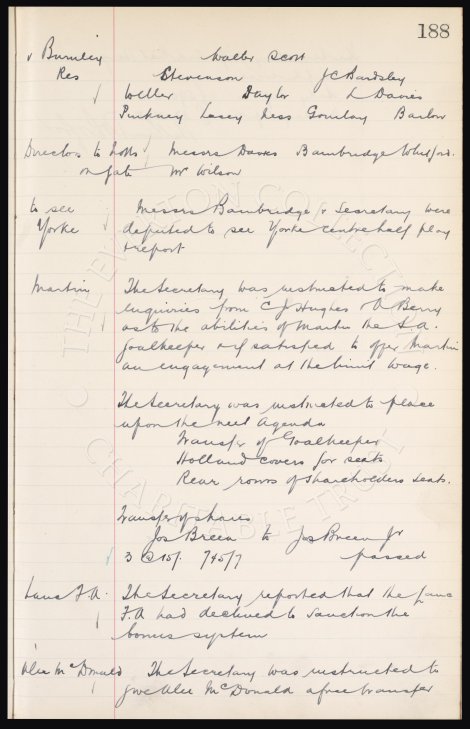 188
v Burnley Walter Scott
Res Stevenson J C Bardsley
Weller Taylor L Davies
Pinkney Lacey Hess Gourlay Barlow
Directors to Notts Messrs Davies Bainbridge Whitford.
on gate Mr Wilson
to see Messrs Bainbridge & Secretary were
Yorke deputed to see Yorke centre half play
& report
Martin The Secretary was instructed to make
enquiries from C J Hughes & A Berry
as to the abilities of Martin the S.A.
Goalkeeper & if satisfied to offer Martin
an engagement at the limit wage.
The Secretary was instructed to place
upon the next Agenda
Transfer of Goalkeeper
Holland covers for seats
Rear rows of shareholders seats.
Transfer of shares
Jos Breen to Jos Breen Jr
3 @ 15/. passed
Lancs F.A. The Secretary reported that the Lancs
F.A had declined to sanction the
bonus system
Alec McDonald The Secretary was instructed to
give Alec McDonald a free transfer
THE EVERTON COLLECTION
CHARITABLE TRUST